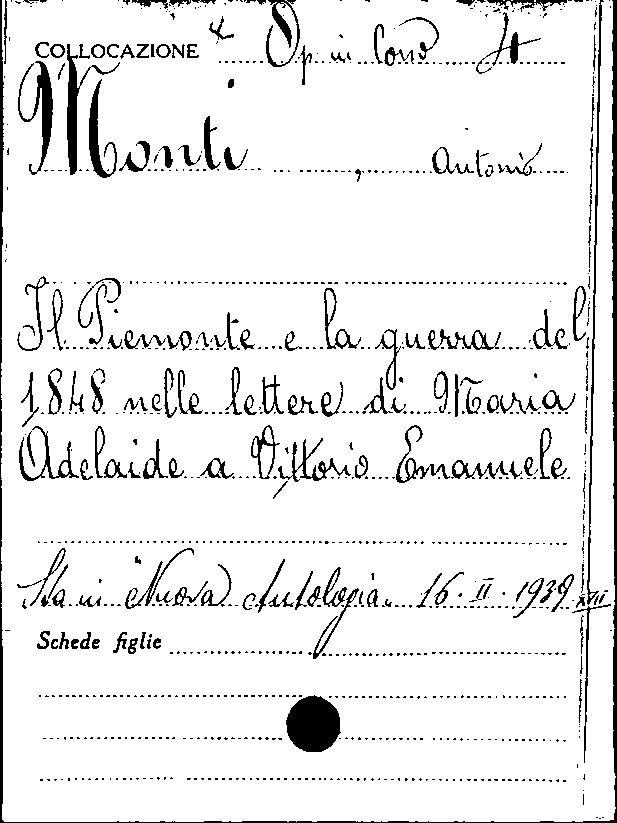 COLLOCAZIONE Op in Cons
Monti, Antonio
Il Piemonte e la guerra del
1848 nelle lettere di Maria
Adelaide a Vittorio Emanuele
Sta in "Nuova Antologia" 16. II. 1939 XVII
Schede figlie